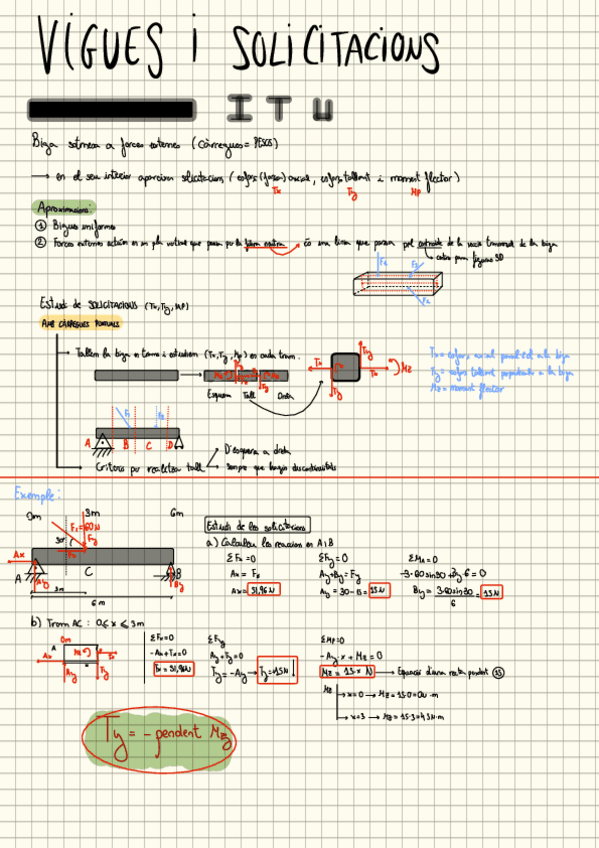 VIGUES I SOLICITACIONS
I T U
Biga sotmesa a forces externes (Càrregues = PESOS)
→ en el seu interior apareixen solicitacions (esforç (força) axial, esforç tallant i moment flector)
Tx Ty MP
Aproximacions:
① Bigues uniformes
② Forces externes actúen en un pla vertical que passa per la fibra neutra → és una línea que passa pel centroide de la secció transversal de la biga
F2 F3
F1
Estudi de SOLICITACIONS (Tx, Ty, MP)
AMB CÀRREGUES PUNTUALS
→ Tallem la biga en trams i estudiem (Tx, Ty, Mz) en cada tram.
Esquerra Tall Dreta
Tx Ty Tx Ty Mz
Tx = esforç axial paral·lel a la biga
Ty = esforç tallant perpendicular a la biga
Mz = moment flector
F1 F2
A B C D
→ Criteris per realitzar tall
D'esquerra a dreta
Sempre que hi hagin discontinuitats
Exemple:
0m 3m 6m
F1=60N
30º
Fy
Fx
Ax
A C B
Ay By
3m
6m
Estudi de les solicitacions
a) Calcular les reaccions en A i B
ΣFx=0
Ax = Fx
Ax = 51,96N
ΣFy=0
Ay+By=Fy
Ay = 30-15 = 15N
ΣMA=0
-3·60sin30+By·6=0
By = 3·60sin30 / 6 = 15N
b) Tram AC: 0≤x≤3m
0m
A Mz Tx
Ax
Ay Ty
ΣFx=0
-Ax+Tx=0
Tx = 51,96N
ΣFy
Ay+Ty=0
Ty = -Ay → Ty=-15N
ΣMP=0
-Ay·x + Mz = 0
Mz = 15·x N → Equació d'una recta pendent 15
Mz
→ x=0 → Mz = 15·0=0N·m
→ x=3 → Mz = 15·3=45N·m
Ty = - pendent Mz